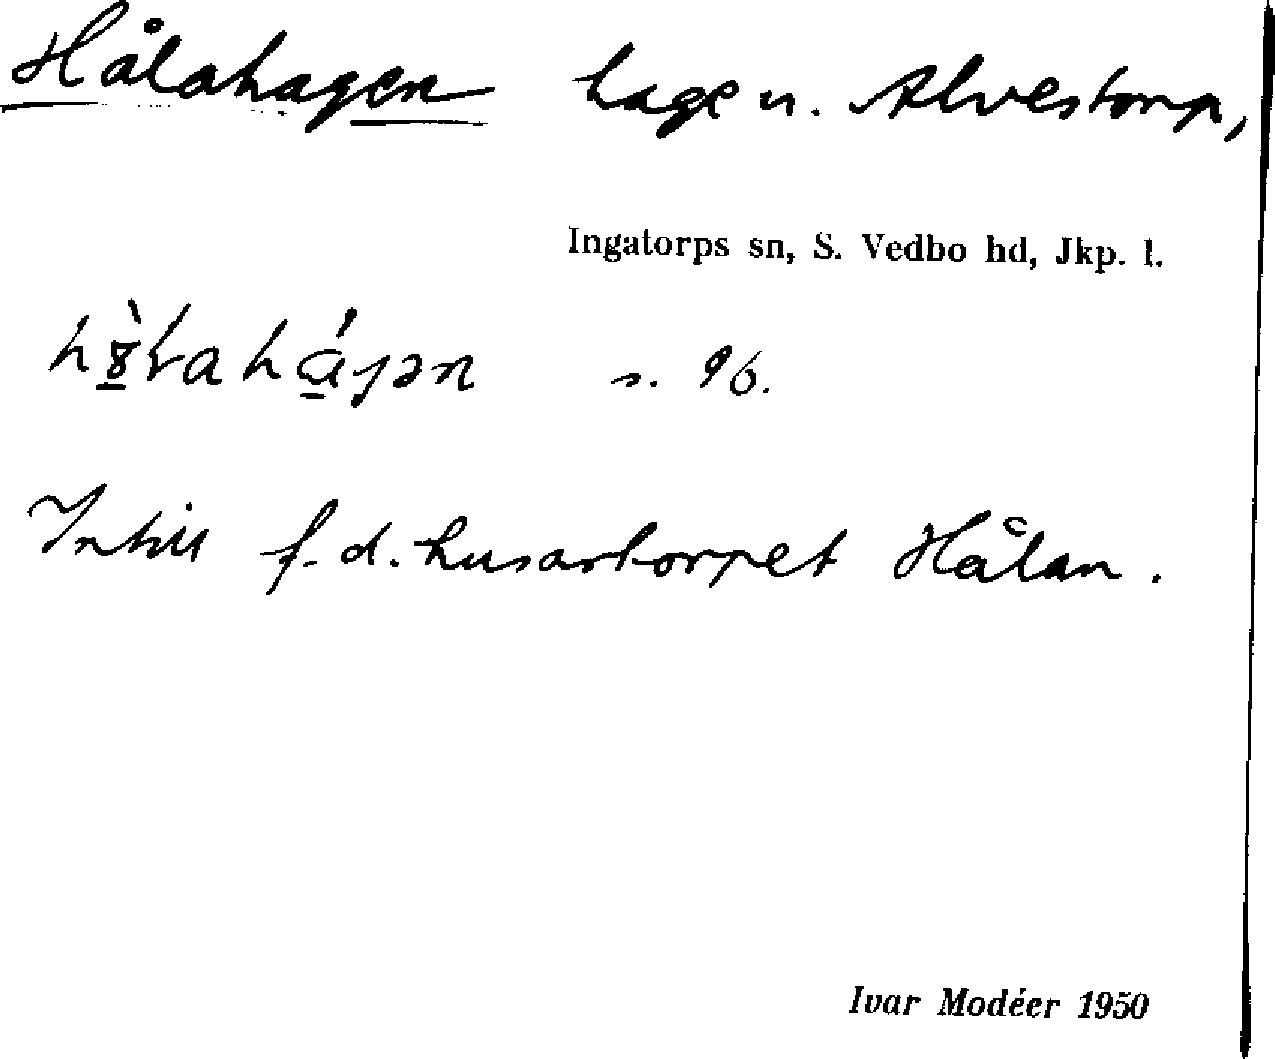 Hålahagen hage u. Alvestorp,
Ingatorps sn, S. Vedbo hd, Jkp. l.
s. 96.
Intill f. d. husartorpet Hålan.
Ivar Modéer 1950